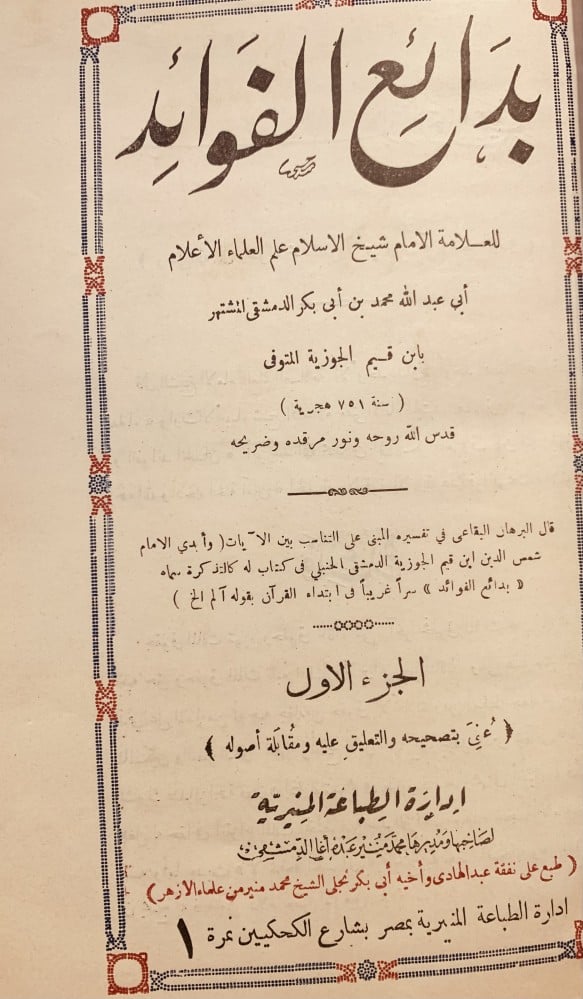 بَدَائِعُ الفَوَائِدِ
للعـلامة الامام شيخ الاسلام علم العلماء الأعلام
أبي عبد الله محمد بن أبى بكر الدمشقى المشتهر
بابن قيم الجوزية المتوفى
( سنة ٧٥١ هجرية )
قدس الله روحه ونور مرقده وضريحه
قال البرهان البقاعى في تفسيره المبنى على التناسب بين الآيات ( وأبدي الامام
شمس الدين ابن قيم الجوزية الدمشقى الحنبلي فى كتاب له كالتذكرة سماه
« بدائع الفوائد » سراً غريباً فى ابتداء القرآن بقوله آلم الخ )
الجزء الاول
﴿ عُنِيَ بتصحيحه والتعليق عليه ومقابلة أصوله ﴾
إدارة الطباعة المنيرية
لصاحبها ومديرها محمد منير عبده أغا الدمشقي
( طبع على نفقة عبد الهادى وأخيه أبي بكر نجلى الشيخ محمد منير من علماء الأزهر )
ادارة الطباعة المنيرية بمصر بشارع الكحكيين نمرة ١